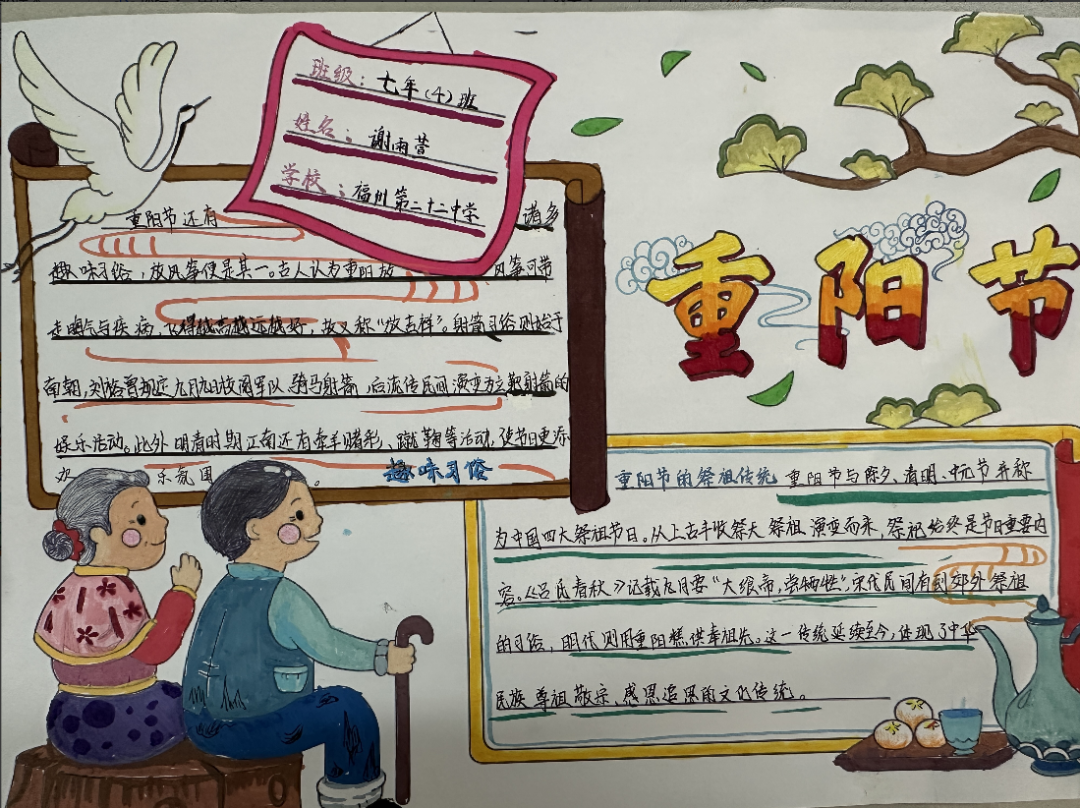 班级：七年（4）班
姓名：谢雨菩
学校：福州第二十二中学
重阳节
重阳节还有 诸多
趣味习俗，放风筝便是其一。古人认为重阳放 风筝可带
走晦气与疾病，飞得越高越远越好，故又称“放吉祥”。射箭习俗则始于
南朝，刘裕曾规定九月九日校阅军队骑马射箭，后流传民间演变为立靶射箭的
娱乐活动。此外明清时期江南还有牵羊赌彩、蹴鞠等活动，使节日更添
欢 乐氛围 。
趣味习俗
重阳节的祭祖传统 重阳节与除夕、清明、中元节并称
为中国四大祭祖节日。从上古丰收祭天祭祖演变而来，祭祀始终是节日重要内
容。《吕氏春秋》记载九月要“大飨帝，尝牺牲”；宋代民间有到郊外祭祖
的习俗，明代则用重阳糕供奉祖先。这一传统延续至今，体现了中华
民族尊祖敬宗、感恩追思的文化传统。